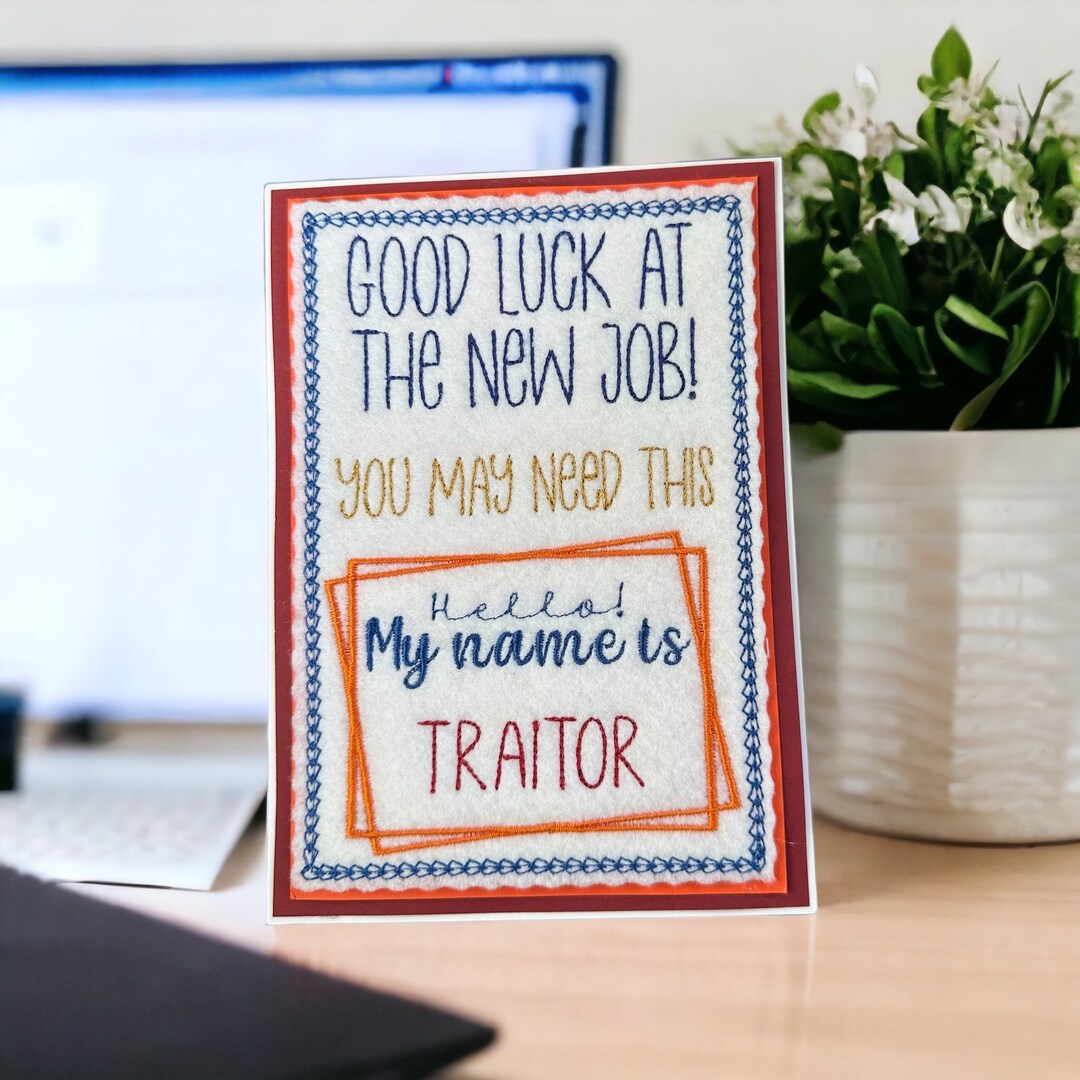 GOOD LUCK AT
THE NEW JOB!
YOU MAY NEED THIS
Hello!
My name is
TRAITOR